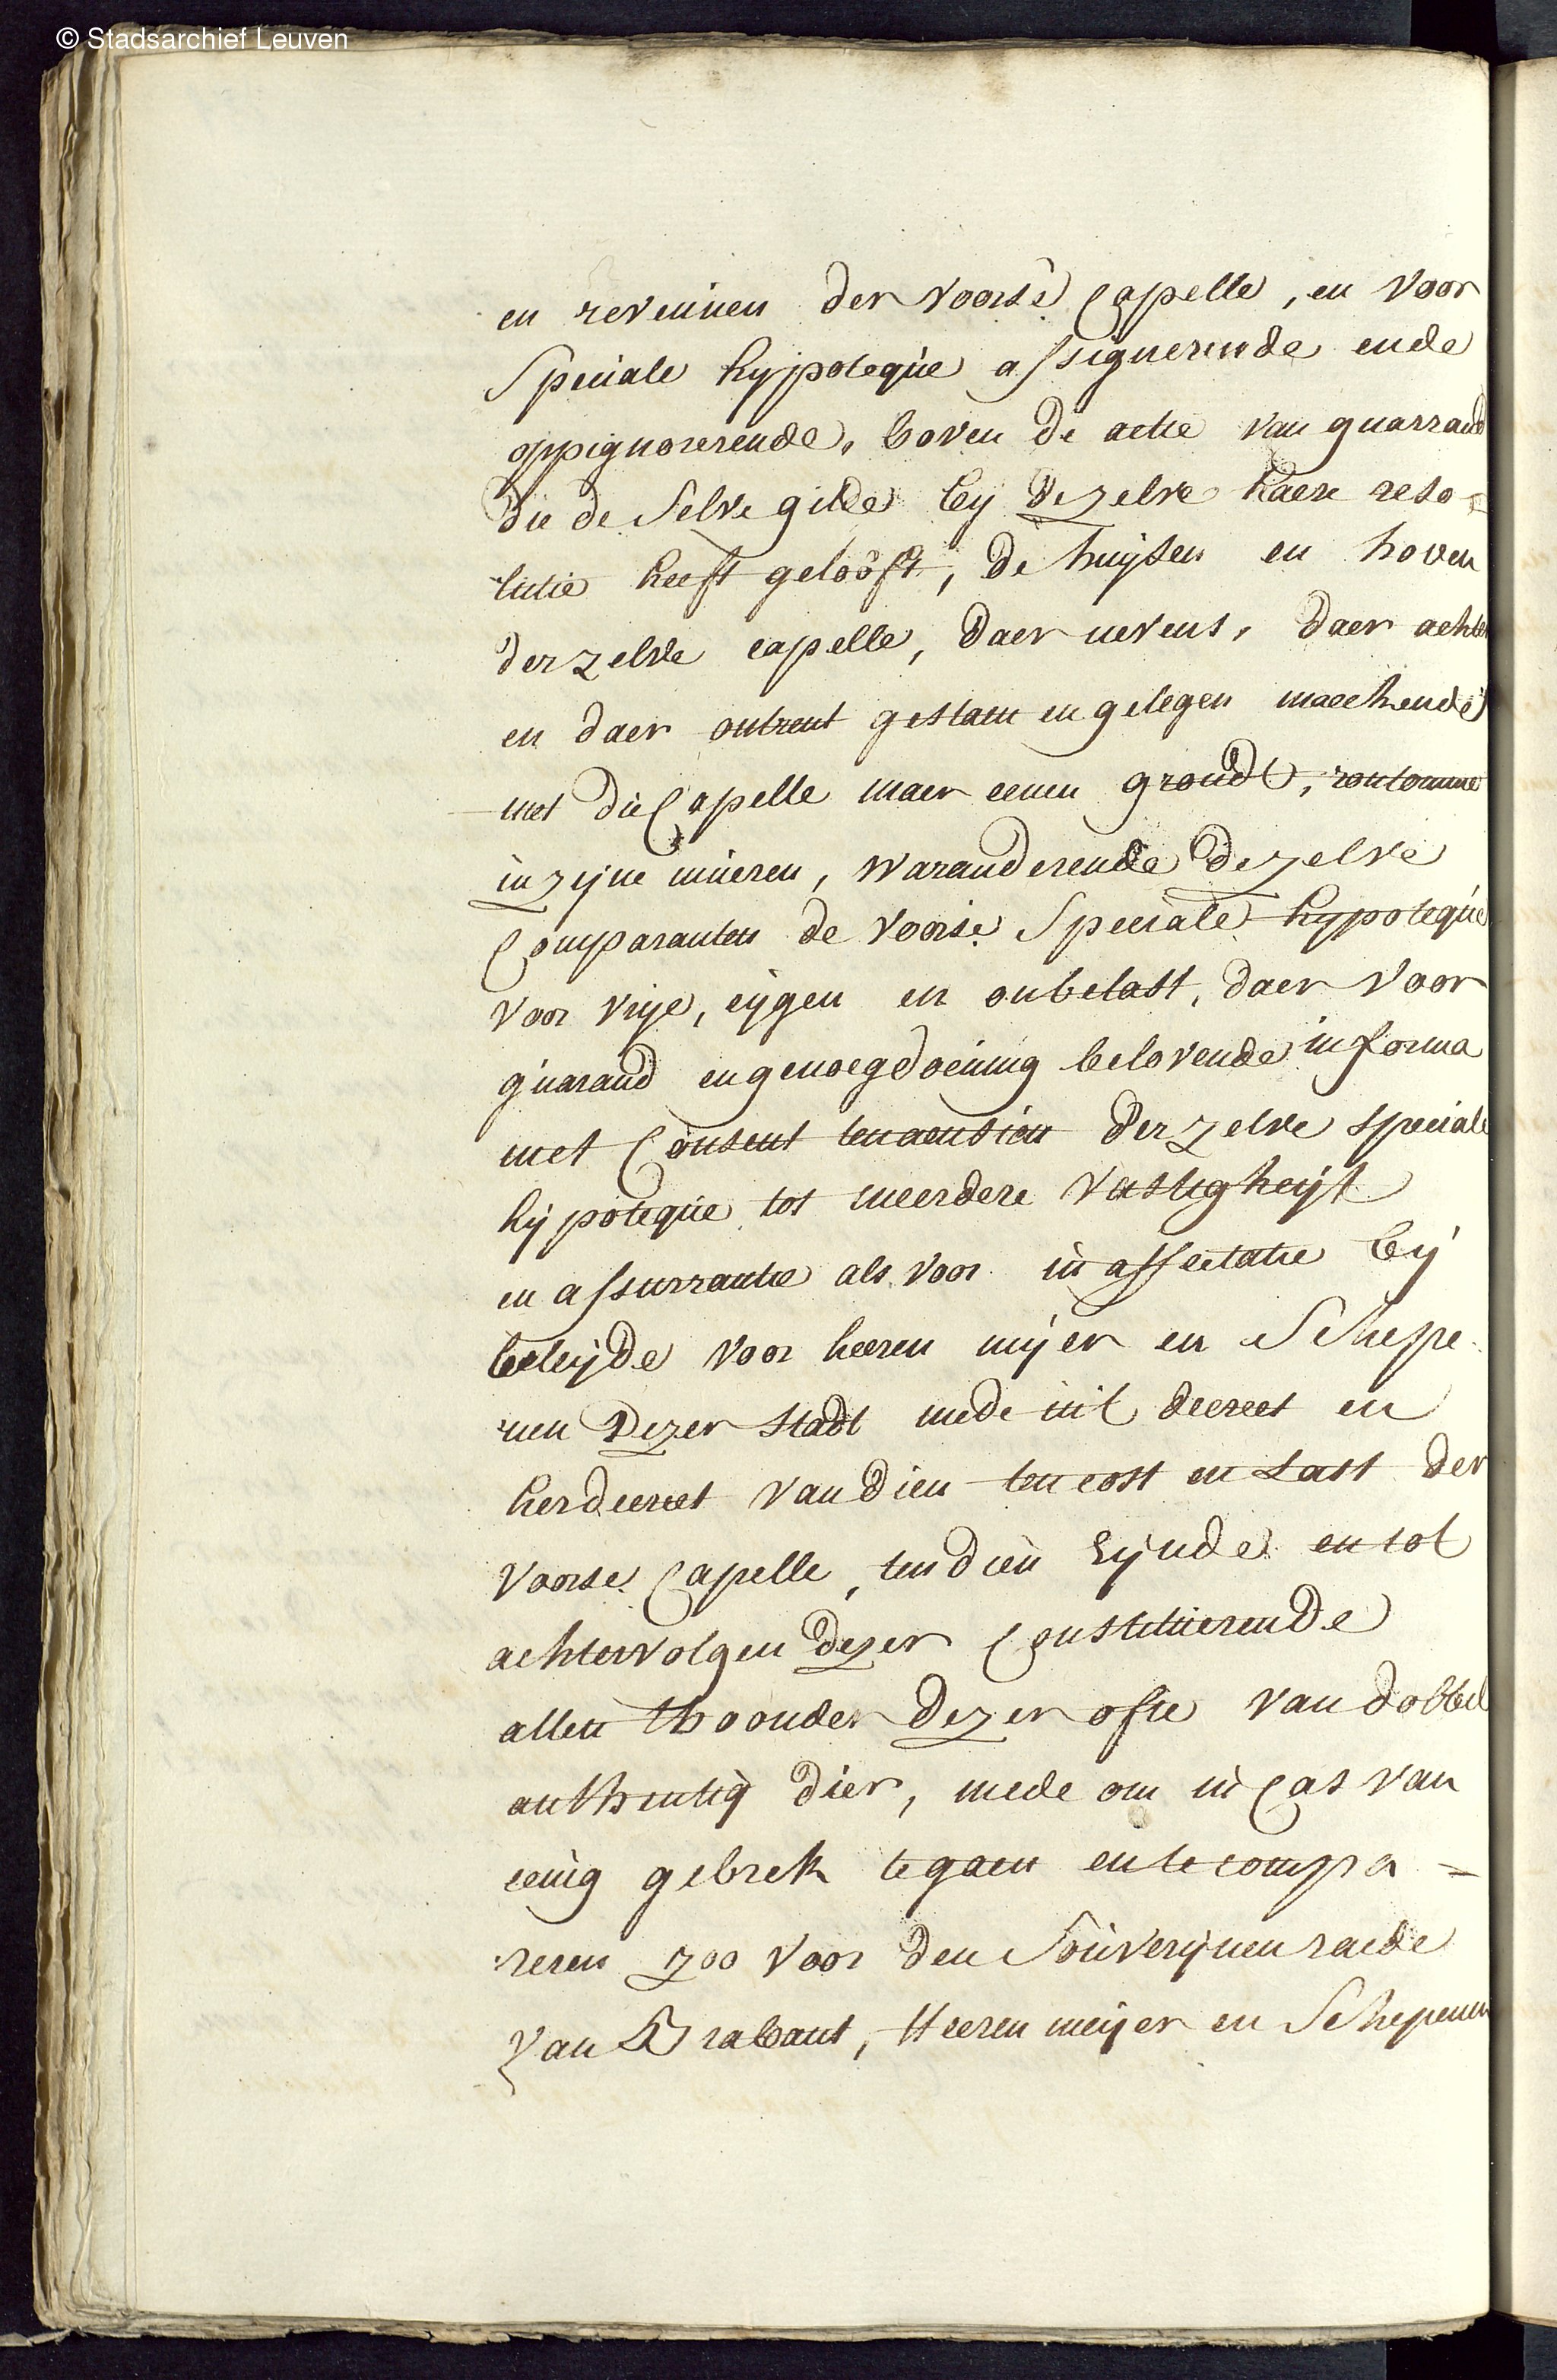 © Stadsarchief Leuven
en revenuen der voors: Capelle, en voor
Speciale hypoteque assignerende ende
oppignorerende, boven de actie van guarrand
die de selve gilde bij dezelve haere reso-
lutie heeft gelooft, de huijsen en hoven
derzelve capelle, daer nevens, daer achter
en daer ontrent gestaen en gelegen maeckende
met die Capelle maer eenen grondt, rontomme
in zijne mueren, waranderende dezelve
Comparanten de voorse: Speciale hypoteque
voor vrije, eijgen en onbelast, daer voor
guarand en genoegdoening belovende in forma
met Consent ten aensien derzelve speciale
hijpoteque tot meerdere vastigheijt
en assurrantie als voor in affectatie bij
beleijde voor heeren meijer en Schepe-
nen dezer stadt mede uit decreet en
herdecreet van dien ten cost en last der
voorse: Capelle, ten dien Eijnde en tot
achtervolgen dezer Constituerende
allen thoonder dezer ofte van dobbel
authentiq dier, mede om in Cas van
eenig gebrek te gaen en te compa=
reren zoo voor den Souverijnen raede
van Brabant, Heeren meijer en Schepenen